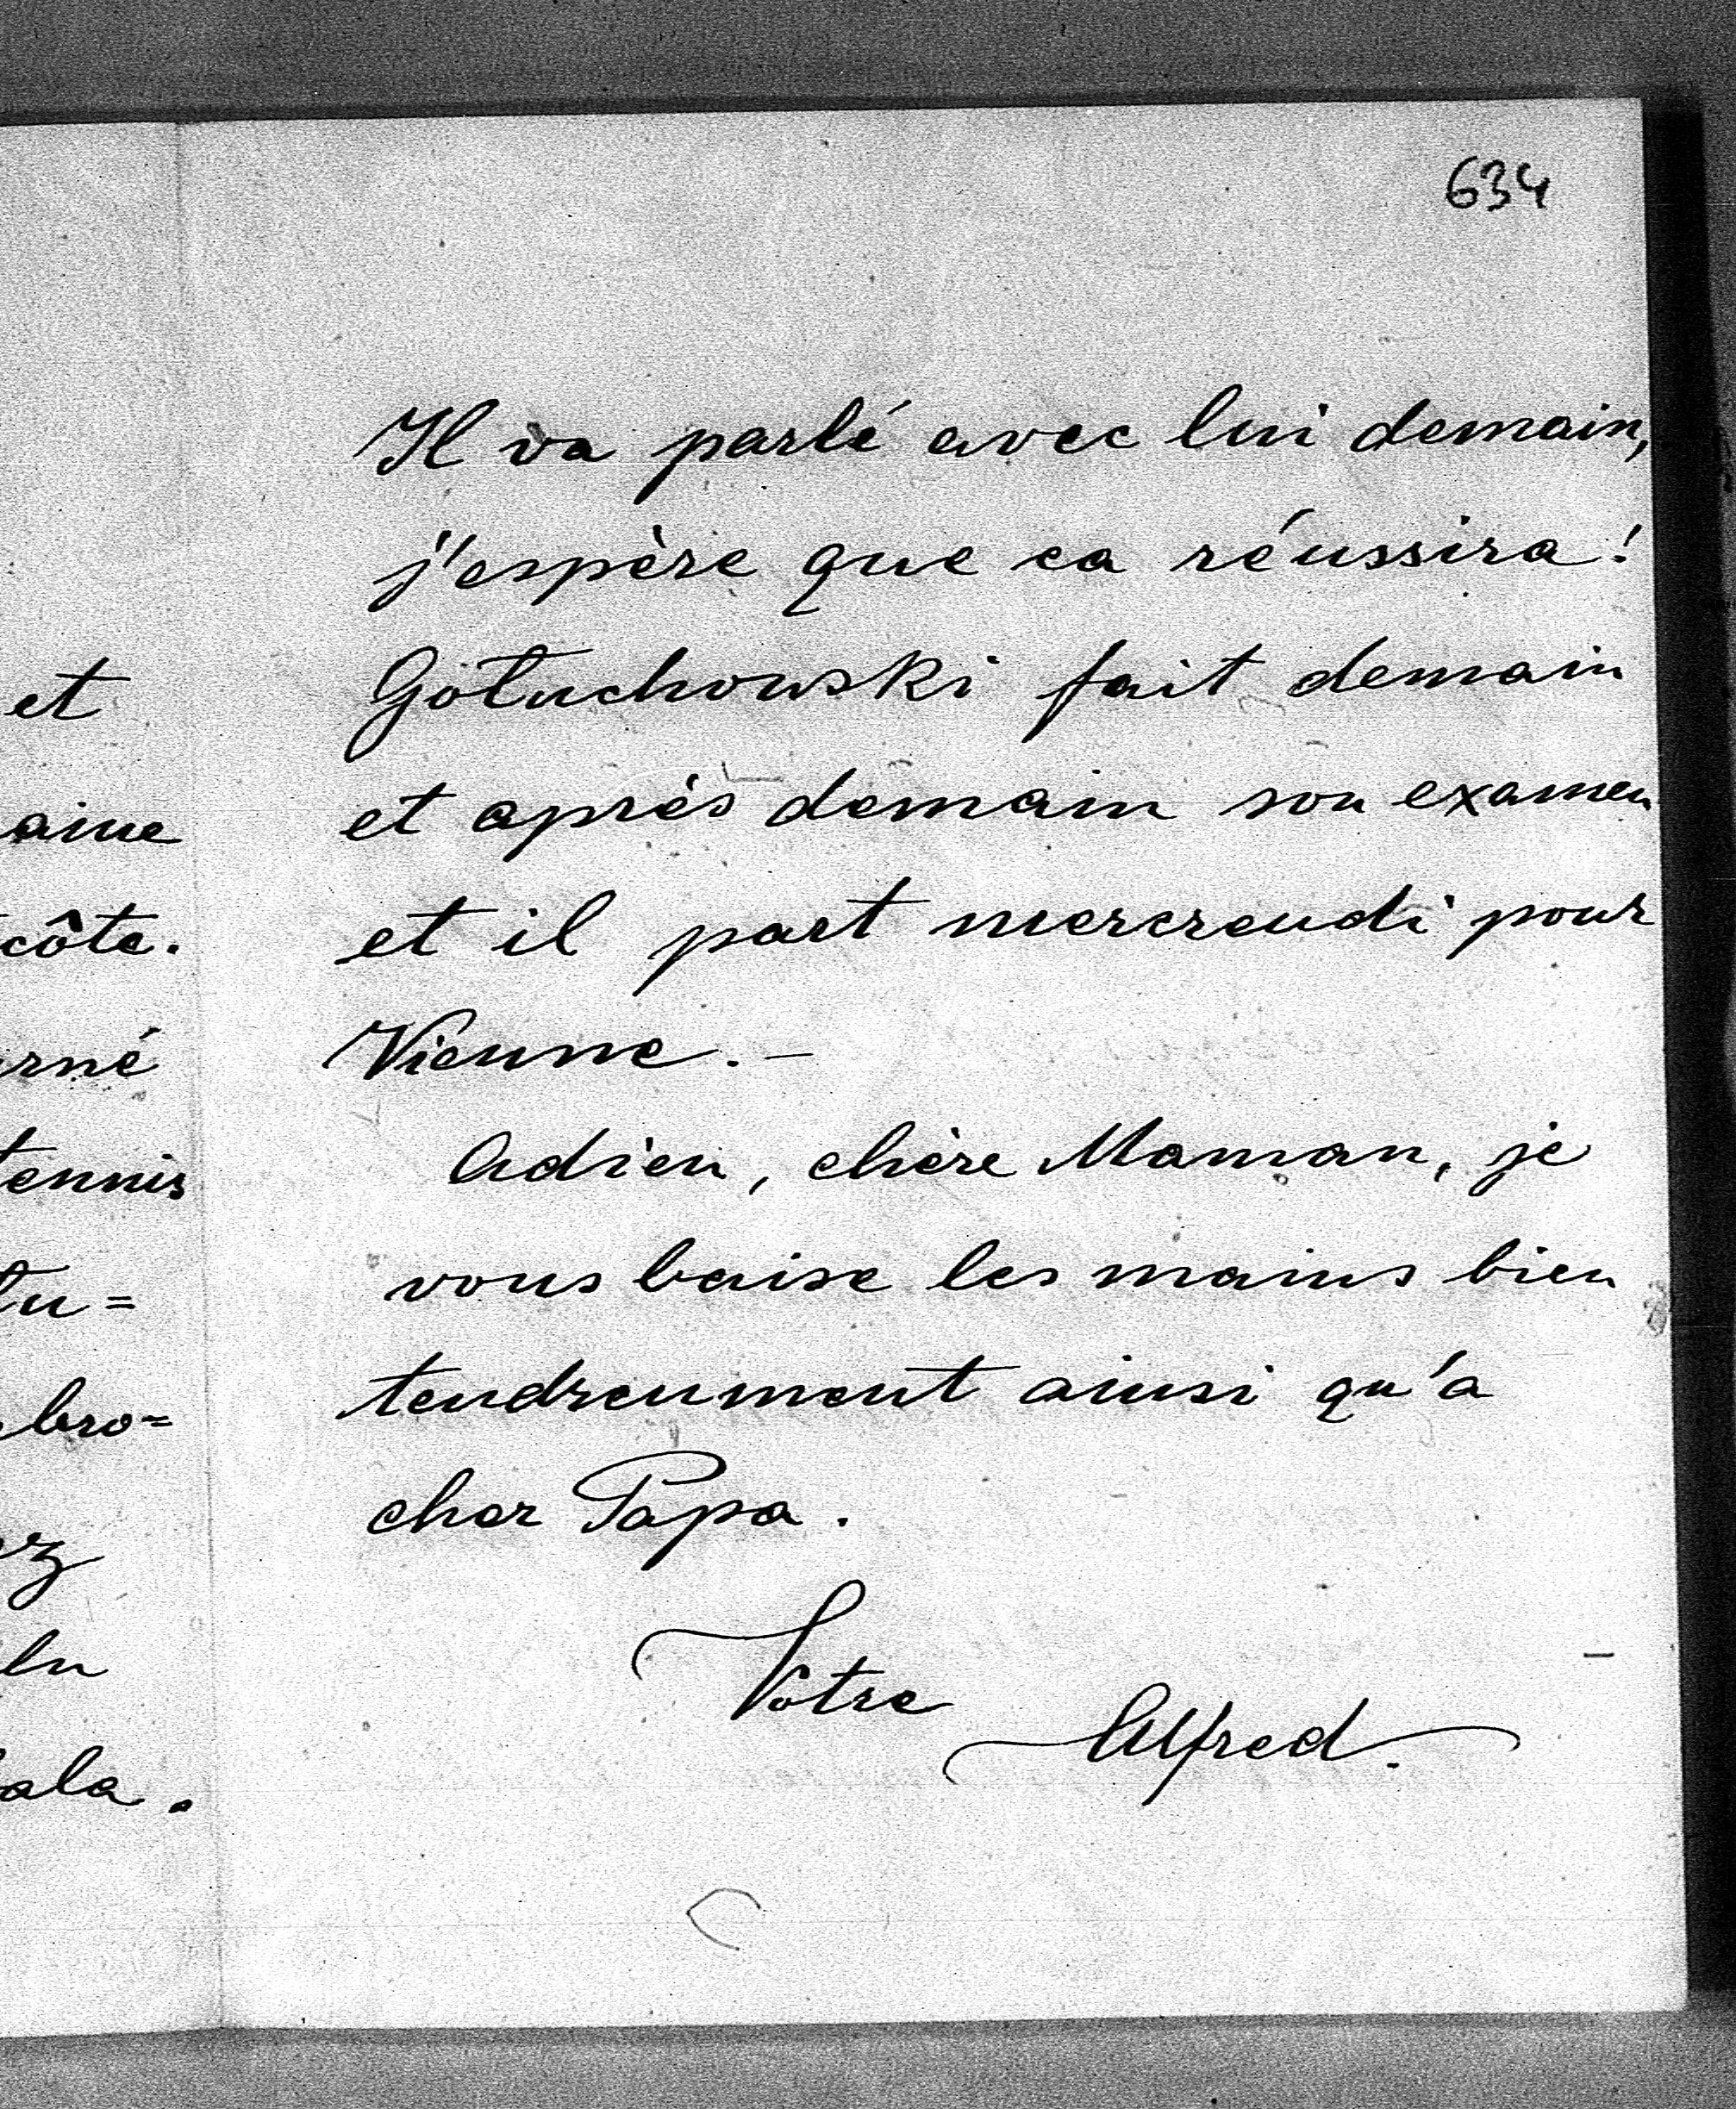 634
et
aine
côte.
rné
tennis
tu=
bro=
ez
lu
ala.
Il va parlé avec lui demain,
j'espère que ca réussira!
Gołuchowski fait demain
et après demain son examen
et il part mercreudi pour
Vienne. -
Adieu, chère Maman, je
vous baise les mains bien
tendreument ainsi qu'a
cher Papa.
Votre
Alfred.